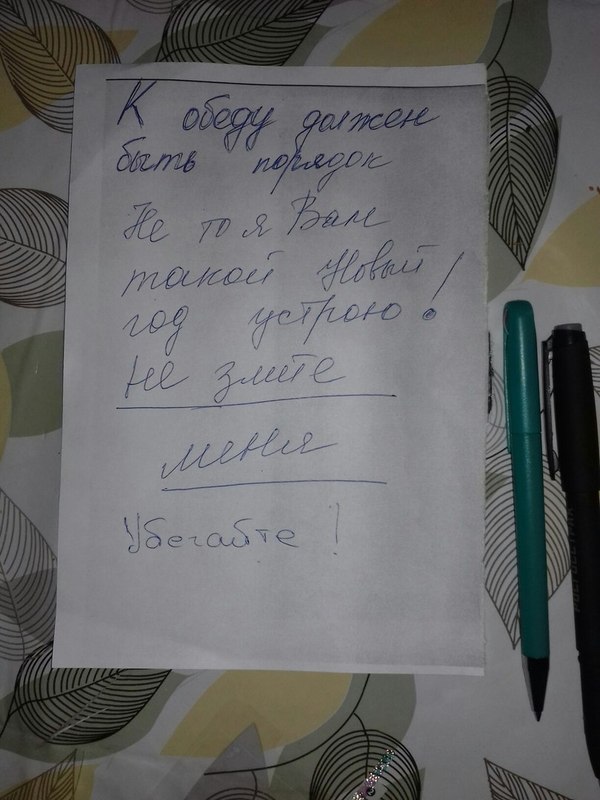 К обеду должен
быть порядок
Не то я Вам
такой Новый
год устрою!
Не злите
меня
Убегайте!